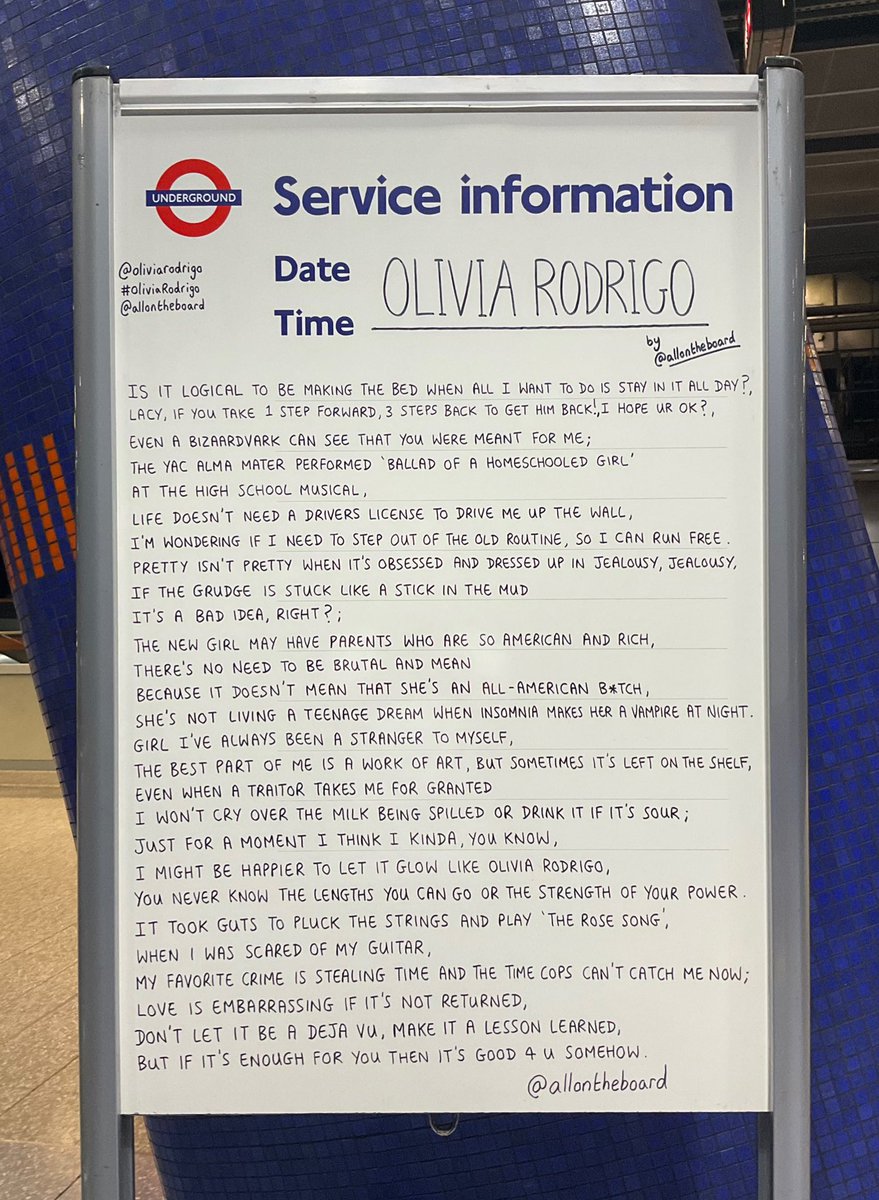 UNDERGROUND
Service information
@oliviarodrigo
#OliviaRodrigo
@allontheboard
Date
Time
OLIVIA RODRIGO
by
@allontheboard
IS IT LOGICAL TO BE MAKING THE BED WHEN ALL I WANT TO DO IS STAY IN IT ALL DAY?,
LACY, IF YOU TAKE 1 STEP FORWARD, 3 STEPS BACK TO GET HIM BACK!, I HOPE UR OK?,
EVEN A BIZAARDVARK CAN SEE THAT YOU WERE MEANT FOR ME;
THE YAC ALMA MATER PERFORMED 'BALLAD OF A HOMESCHOOLED GIRL'
AT THE HIGH SCHOOL MUSICAL,
LIFE DOESN'T NEED A DRIVERS LICENSE TO DRIVE ME UP THE WALL,
I'M WONDERING IF I NEED TO STEP OUT OF THE OLD ROUTINE, SO I CAN RUN FREE.
PRETTY ISN'T PRETTY WHEN IT'S OBSESSED AND DRESSED UP IN JEALOUSY, JEALOUSY,
IF THE GRUDGE IS STUCK LIKE A STICK IN THE MUD
IT'S A BAD IDEA, RIGHT?;
THE NEW GIRL MAY HAVE PARENTS WHO ARE SO AMERICAN AND RICH,
THERE'S NO NEED TO BE BRUTAL AND MEAN
BECAUSE IT DOESN'T MEAN THAT SHE'S AN ALL-AMERICAN B*TCH,
SHE'S NOT LIVING A TEENAGE DREAM WHEN INSOMNIA MAKES HER A VAMPIRE AT NIGHT.
GIRL I'VE ALWAYS BEEN A STRANGER TO MYSELF,
THE BEST PART OF ME IS A WORK OF ART, BUT SOMETIMES IT'S LEFT ON THE SHELF,
EVEN WHEN A TRAITOR TAKES ME FOR GRANTED
I WON'T CRY OVER THE MILK BEING SPILLED OR DRINK IT IF IT'S SOUR;
JUST FOR A MOMENT I THINK I KINDA, YOU KNOW,
I MIGHT BE HAPPIER TO LET IT GLOW LIKE OLIVIA RODRIGO,
YOU NEVER KNOW THE LENGTHS YOU CAN GO OR THE STRENGTH OF YOUR POWER.
IT TOOK GUTS TO PLUCK THE STRINGS AND PLAY 'THE ROSE SONG',
WHEN I WAS SCARED OF MY GUITAR,
MY FAVORITE CRIME IS STEALING TIME AND THE TIME COPS CAN'T CATCH ME NOW;
LOVE IS EMBARRASSING IF IT'S NOT RETURNED,
DON'T LET IT BE A DEJA VU, MAKE IT A LESSON LEARNED,
BUT IF IT'S ENOUGH FOR YOU THEN IT'S GOOD 4 U SOMEHOW.
@allontheboard